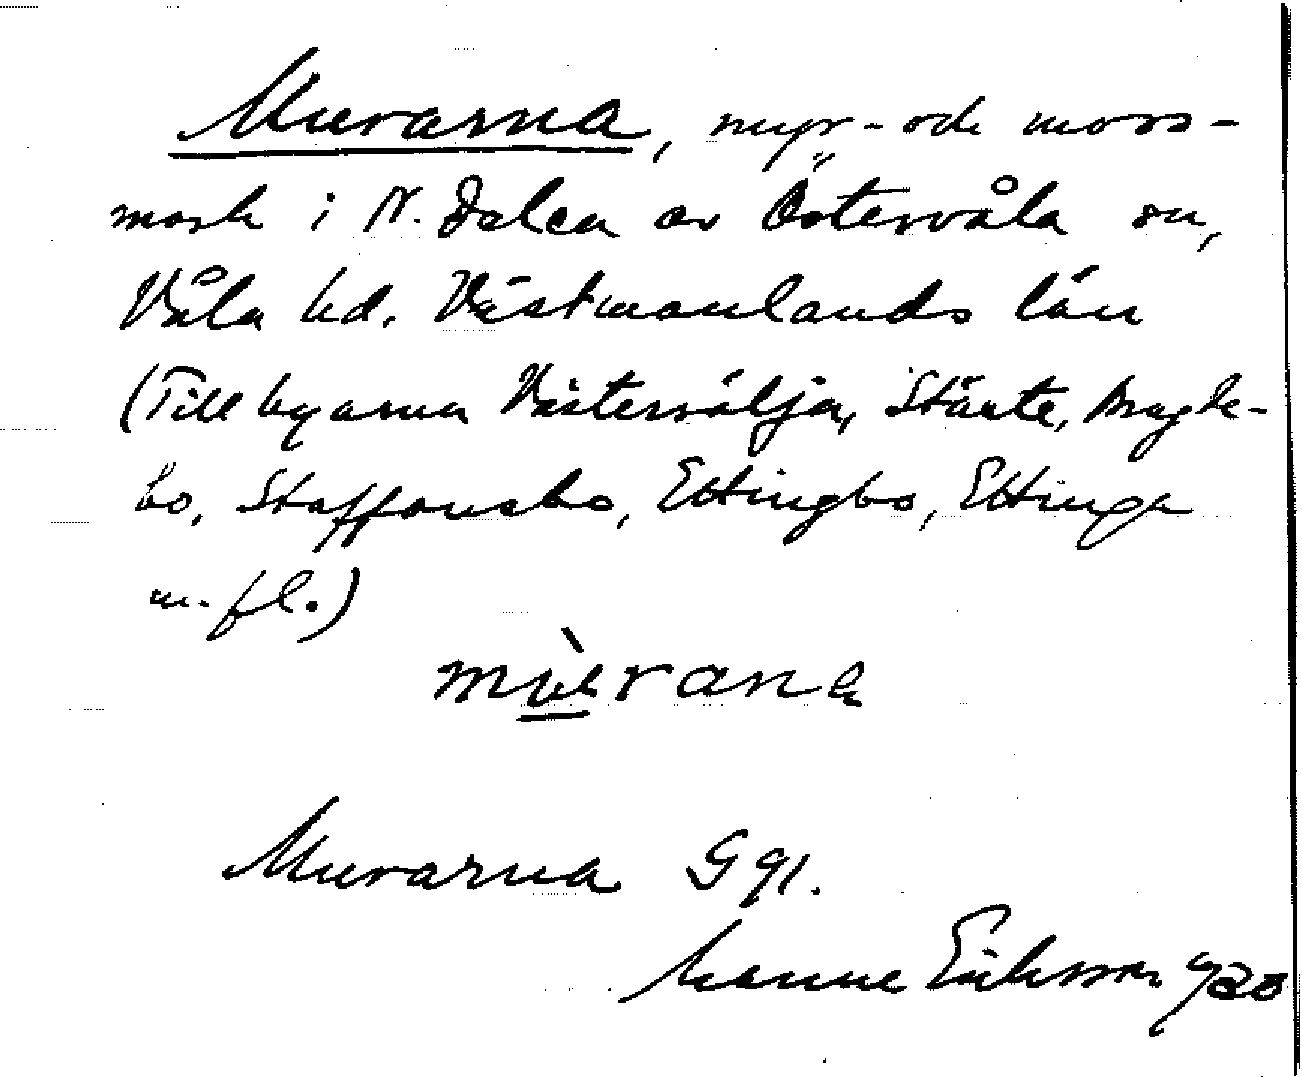 Murarna, myr- och moss-
mark i N. delen av Östervåla sn,
Våla hd. Västmanlands län
(Till byarna Västersälja, Stärte, Bragls-
bo, Staffansbo, Ettingbo, Ettinga
m. fl.)
mùrana
Murarna G 91.
Manne Eriksson 1920